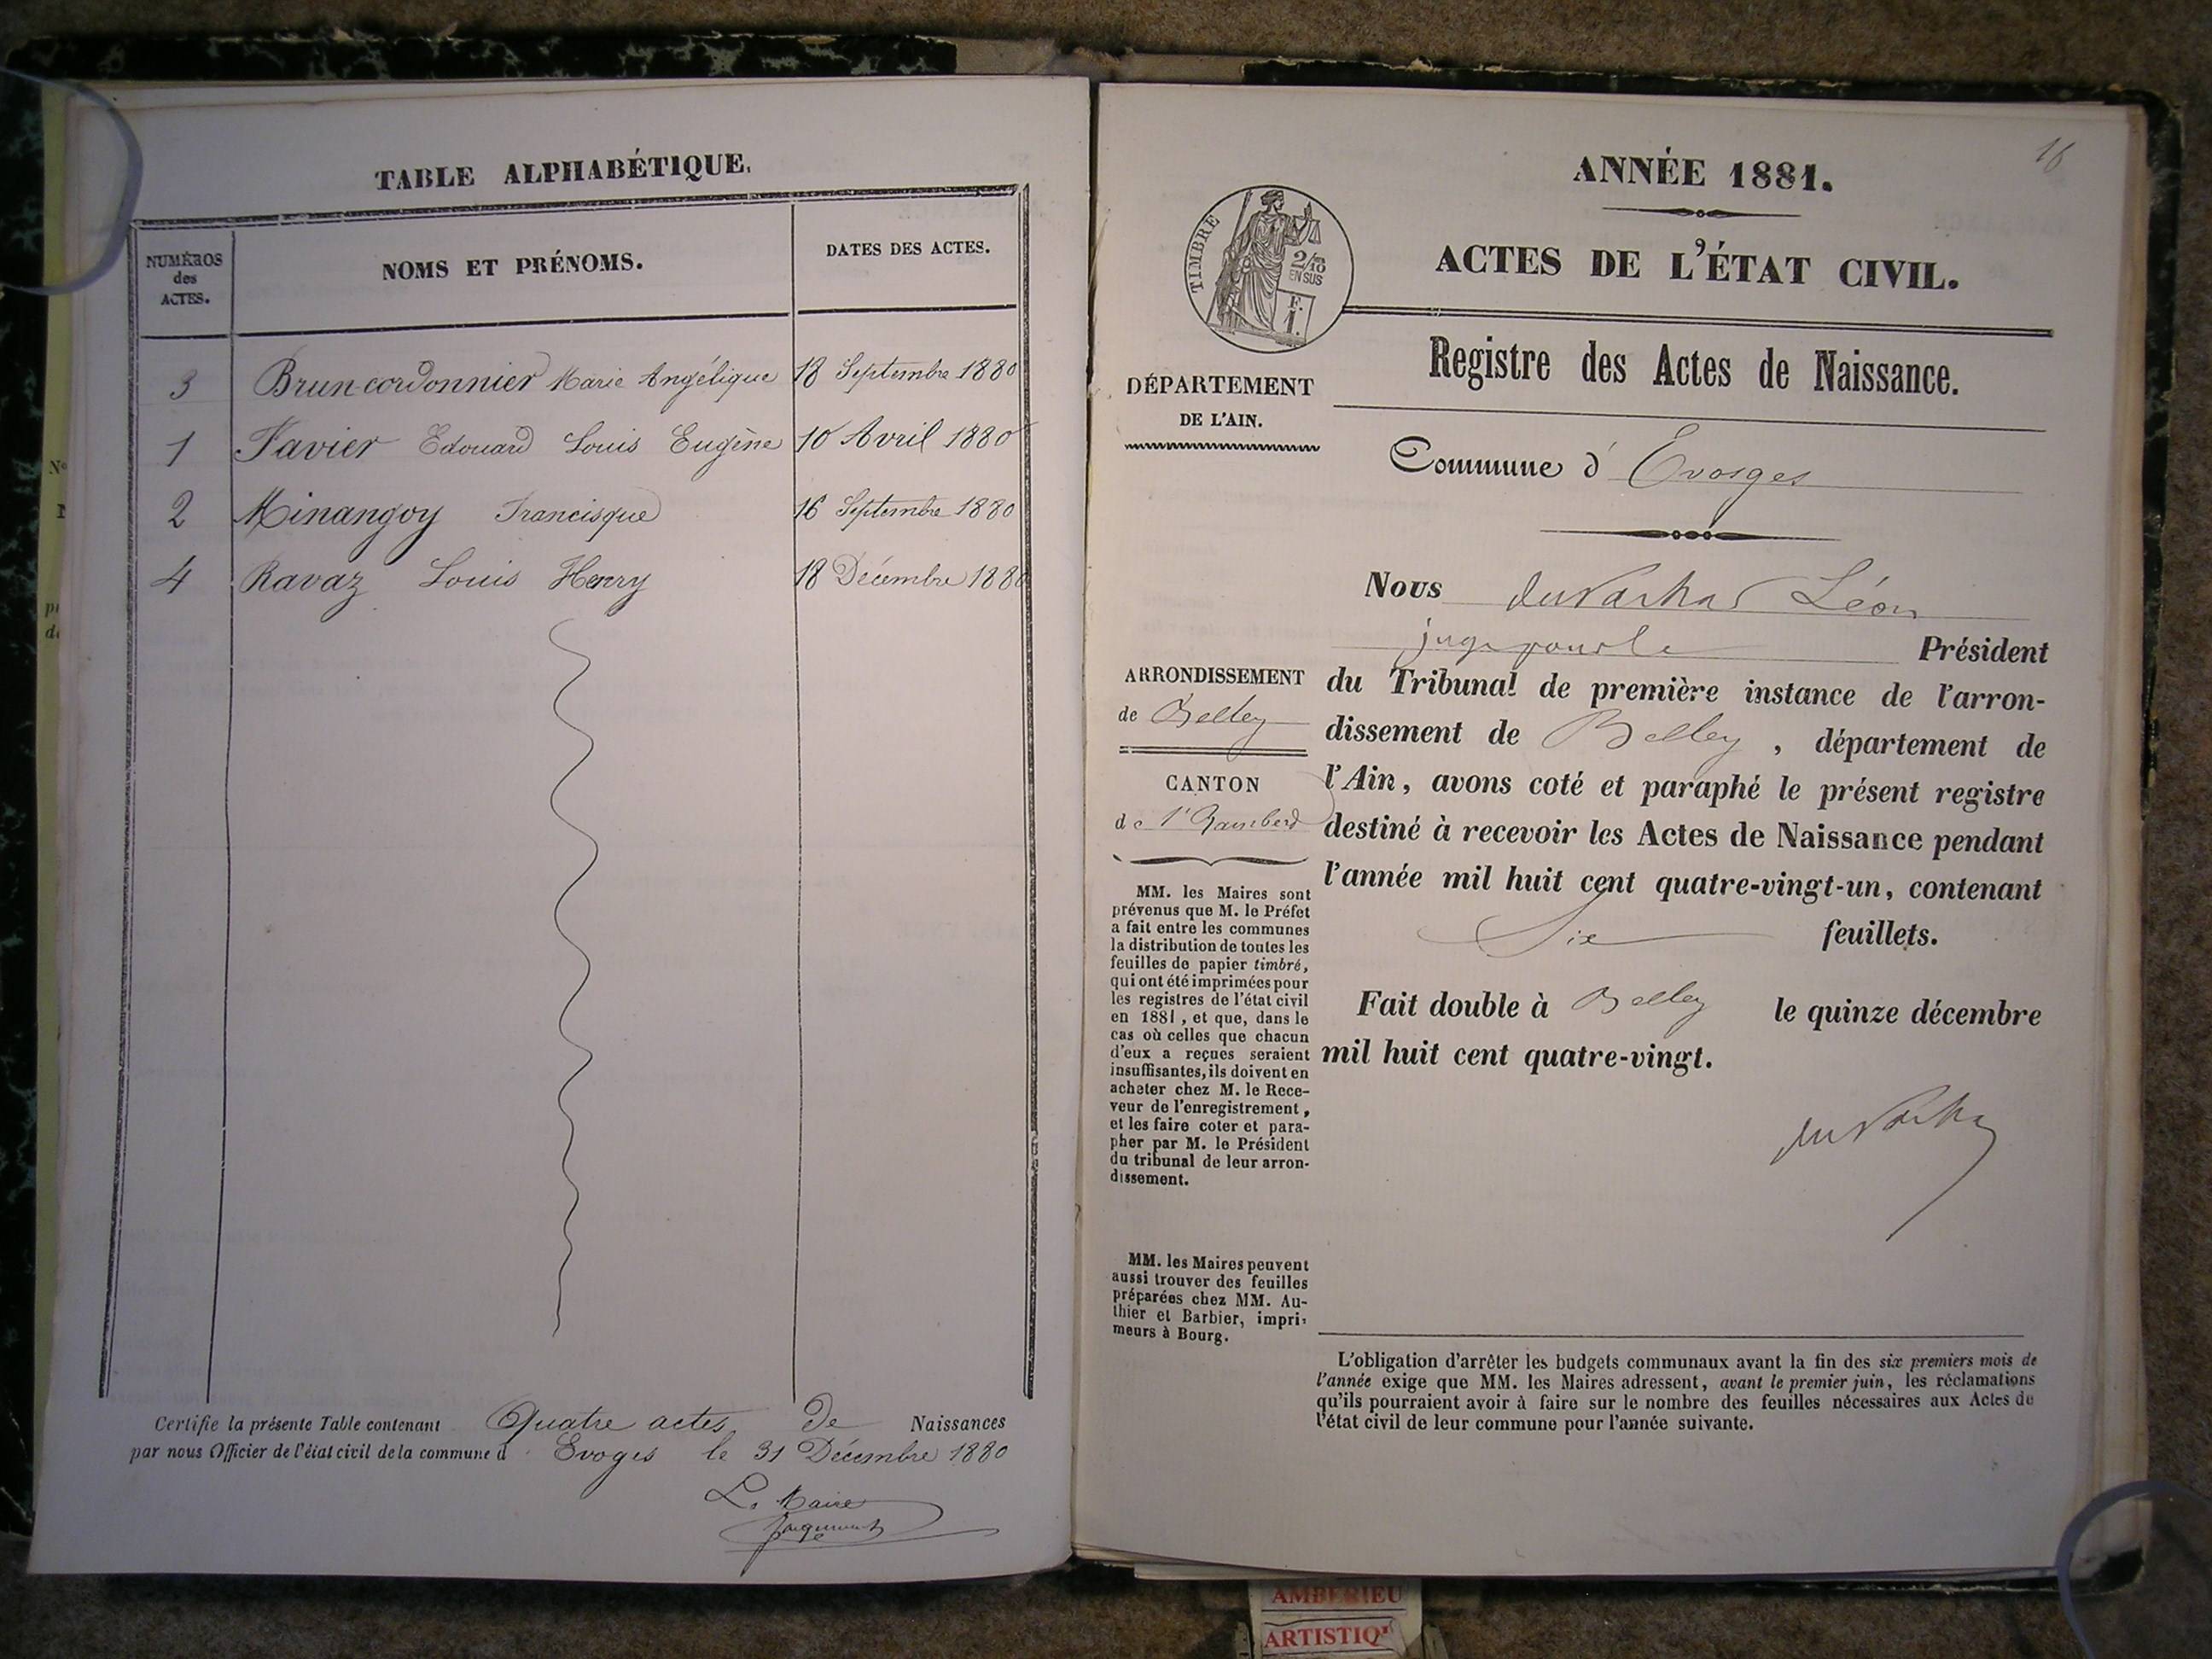 TABLE ALPHABÉTIQUE.
NUMÉROS
des
ACTES.
NOMS ET PRÉNOMS.
DATES DES ACTES.
3 Brun-cordonnier Marie Angélique 18 Septembre 1880
1 Favier Edouard Louis Eugène 10 Avril 1880
2 Minangoy Francisque 16 Septembre 1880
4 Ravaz Louis Henry 18 Décembre 1880
Certifie la présente Table contenant Quatre actes de Naissances
par nous Officier de l'état civil de la commune d Evoges le 31 Décembre 1880
Le Maire
16
ANNÉE 1881.
ACTES DE L'ÉTAT CIVIL.
TIMBRE
2/10
EN SUS
F.
1.
Registre des Actes de Naissance.
DÉPARTEMENT
DE L'AIN.
Commune d' Evosges
Nous Léon
juge pour le Président
du Tribunal de première instance de l'arron-
dissement de Belley, département de
l'Ain, avons coté et paraphé le présent registre
destiné à recevoir les Actes de Naissance pendant
l'année mil huit cent quatre-vingt-un, contenant
Six feuillets.
Fait double à Belley le quinze décembre
mil huit cent quatre-vingt.
ARRONDISSEMENT
de Belley
CANTON
de St Rambert
MM. les Maires sont
prévenus que M. le Préfet
a fait entre les communes
la distribution de toutes les
feuilles de papier timbré,
qui ont été imprimées pour
les registres de l'état civil
en 1881, et que, dans le
cas où celles que chacun
d'eux a reçues seraient
insuffisantes, ils doivent en
acheter chez M. le Rece-
veur de l'enregistrement,
et les faire coter et para-
pher par M. le Président
du tribunal de leur arron-
dissement.
MM. les Maires peuvent
aussi trouver des feuilles
préparées chez MM. Au-
thier et Barbier, impri-
meurs à Bourg.
L'obligation d'arrêter les budgets communaux avant la fin des six premiers mois de
l'année exige que MM. les Maires adressent, avant le premier juin, les réclamations
qu'ils pourraient avoir à faire sur le nombre des feuilles nécessaires aux Actes de
l'état civil de leur commune pour l'année suivante.
AMBERIEU
ARTISTIQ